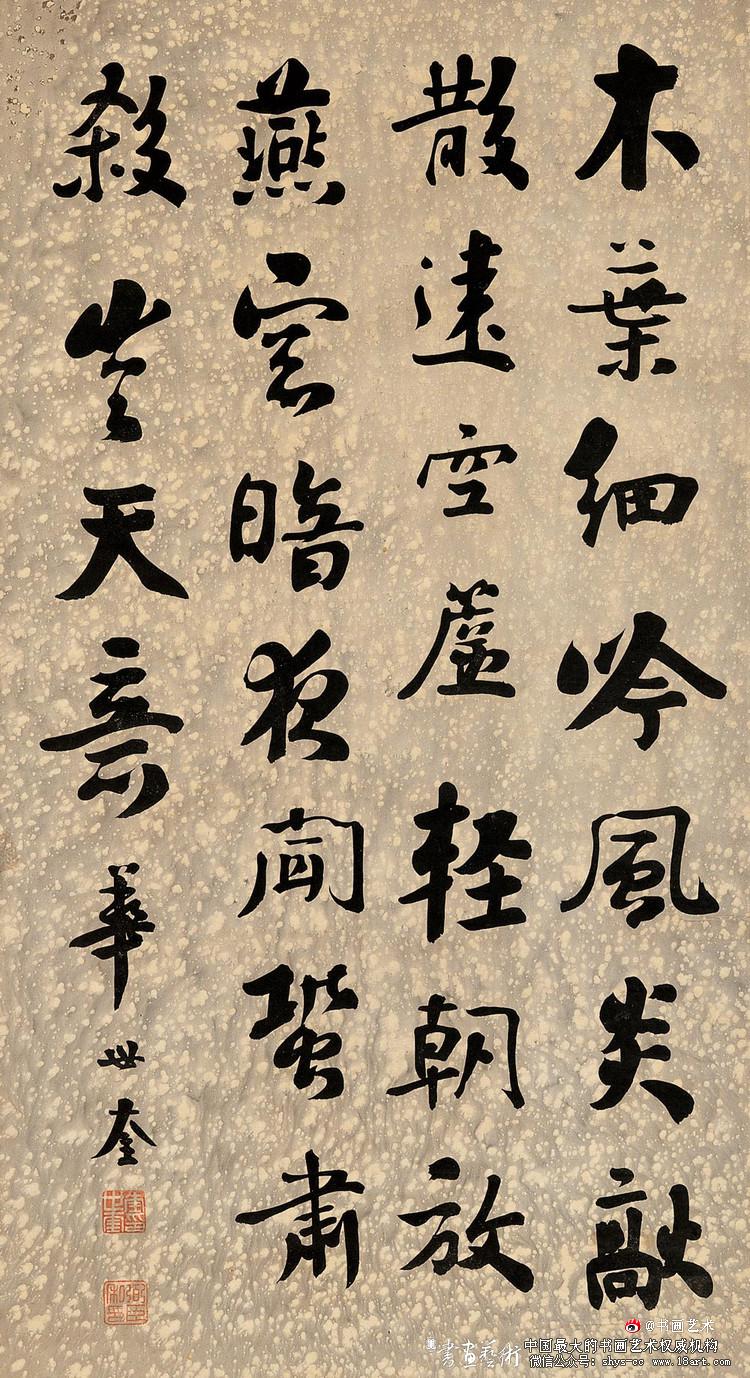 木葉細吟風炎歊
散遠空簾輕朝放
燕窓暗夜聞蛩肅
殺豈天意
華世奎
@书画艺术
書畫藝術
中国最大的书画艺术权威机构
微信公众号：shys-cc www.18art.com